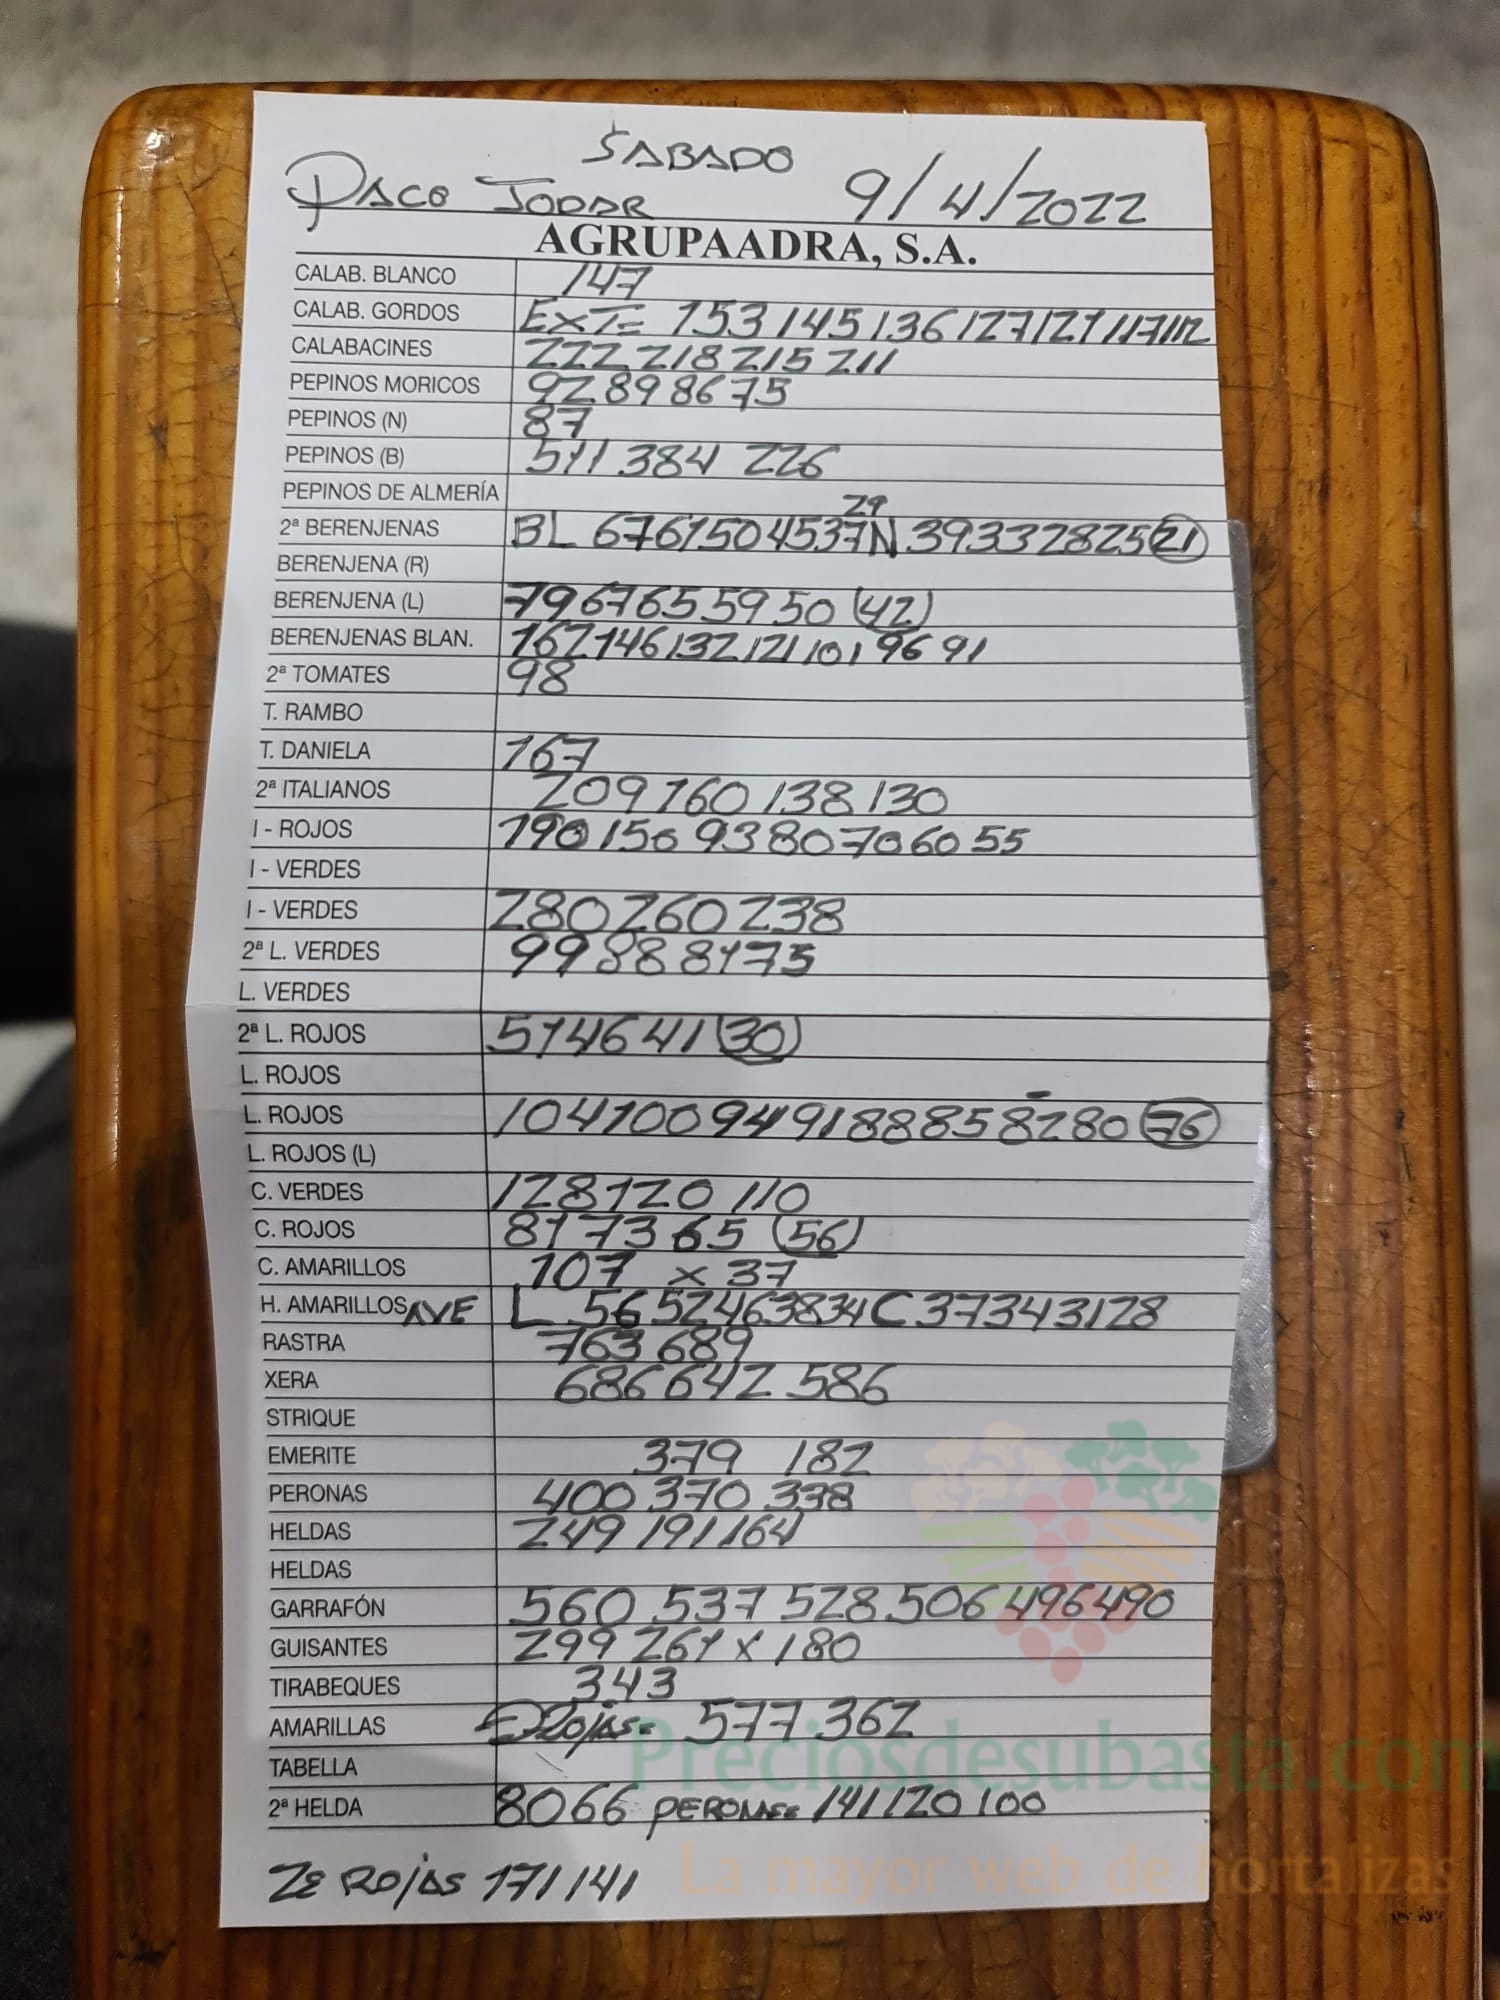 SABADO
PACO JODAR 9/4/2022
AGRUPAADRA, S.A.
CALAB. BLANCO 147
CALAB. GORDOS EXT= 153 145 136 127 121 117 112
CALABACINES 222 218 215 211
PEPINOS MORICOS 92 89 86 75
PEPINOS (N) 87
PEPINOS (B) 511 384 226
PEPINOS DE ALMERÍA
29
2ª BERENJENAS BL 67 61 50 45 37 N 39 33 28 25 21
BERENJENA (R)
BERENJENA (L) 79 67 65 59 50 (42)
BERENJENAS BLAN. 162 146 132 121 101 96 91
2ª TOMATES 98
T. RAMBO
T. DANIELA 167
2ª ITALIANOS 209 160 138 130
I - ROJOS 190 150 93 80 70 60 55
I - VERDES
I - VERDES 280 260 238
2ª L. VERDES 99 88 81 75
L. VERDES
2ª L. ROJOS 51 46 41 (30)
L. ROJOS
L. ROJOS 104 100 94 91 88 85 82 80 76
L. ROJOS (L)
C. VERDES 128 120 110
C. ROJOS 81 73 65 (56)
C. AMARILLOS 107 x 37
H. AMARILLOS AVE L 56 52 46 38 34 C 37 34 31 28
RASTRA 763 689
XERA 686 642 586
STRIQUE
EMERITE 379 182
PERONAS 400 370 338
HELDAS 249 191 164
HELDAS
GARRAFÓN 560 537 528 506 496 490
GUISANTES 299 261 x 180
TIRABEQUES 343
AMARILLAS ROJAS= 577 362
TABELLA
2ª HELDA 80 66 PERONAS= 141 120 100
2ª ROJAS 171 141
Preciosdesubasta.com
La mayor web de hortalizas